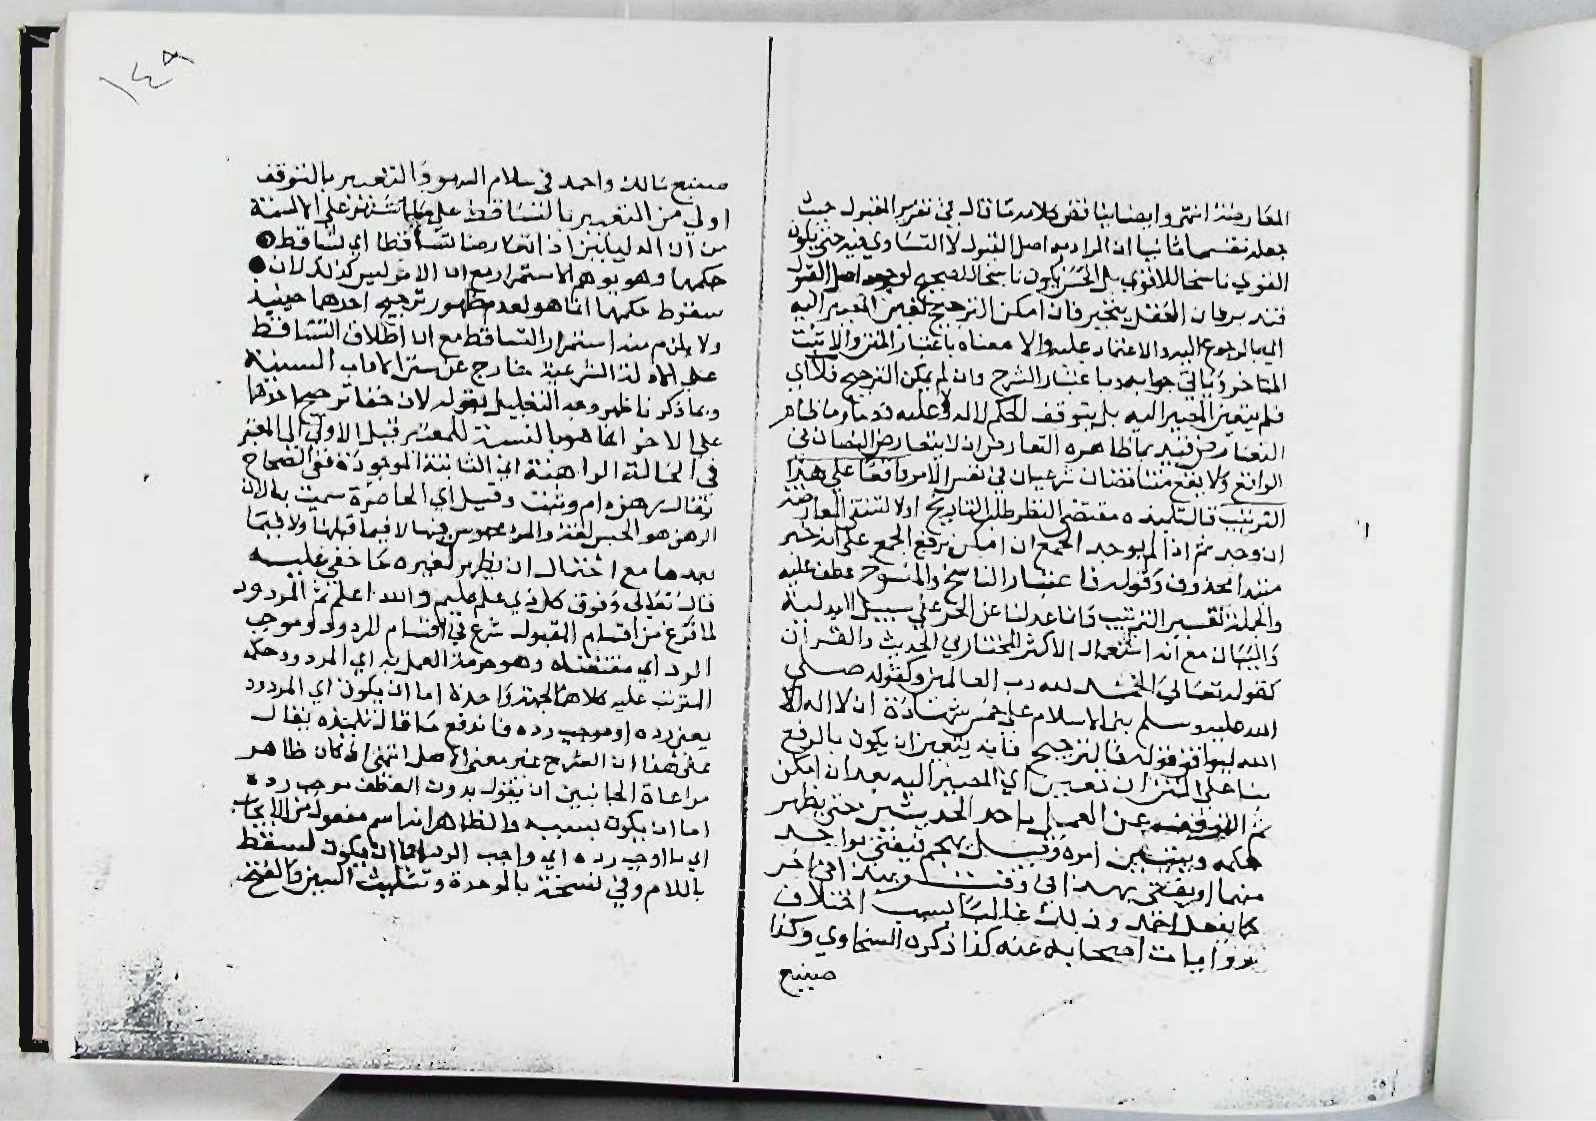 المعارضة انتهى وايضا يناقض كلامه ما قال في تقرير المقبول حيث
جعله قسما ثانيا ان المراد به اصل القبول لا التساوي فيه حتى يكون
القوي ناسخا للاقوى بل الحسن يكون ناسخا للصحيح لوجود اصل القبول
فتدبر فان العقل يتحير فان امكن الترجيح تعين المصير اليه
اي بالرجوع اليه والاعتماد عليه والا معناه باعتبار المتن والا تثبت
المتاخر وياتي جوابه وباعتبار الشرح وان لم يمكن الترجيح فلا اي
فلم يتعين المصير اليه بل يتوقف للحكم له او عليه فصار ما ظاهره
التعارض قيد بما ظاهره التعارض اذ لا يتعارض النصان في
الواقع ولا يقع متناقضان شرعيان في نفس الامر واقعا على هذا
الترتيب قال تلميذه مقتضى النظر طلب التاريخ اولا لتنتفي المعارضة
ان وجد ثم اذا لم يوجد الجمع ان امكن برفع الجمع على انه خبر
مبتدا محذوف وقوله فاعتبار الناسخ والمنسوخ عطف عليه
والجملة تفسير الترتيب وانما عدلنا عن الجر على سبيل البدلية
والبيان مع انه استعمال الاكثر المختار في الحديث والقران
كقوله تعالى الحمد لله رب العالمين وكقوله صلى
الله عليه وسلم بني الاسلام على خمس شهادة ان لا اله الا
الله ليوافق قوله فالترجيح فانه يتعين ان يكون بالرفع
بناء على المتن ان تعين اي المصير اليه بعد ان امكن
ثم التوقف عن العمل باحد الحديثين حتى يظهر
حكمه ويتبين امره وقيل يهجم فيفتي بواحد
منهما او يفتي بهذا في وقت وبهذا في اخر
كما يفعل احمد وذلك غالبا بسبب اختلاف
روايات اصحابه عنه كذا ذكره السخاوي وكذا
صنيع
١٤٨
صنيع مالك واحمد في سلام السهو والتعبير بالتوقف
اولى من التعبير بالتساقط على ما اشتهر على الالسنة
من ان الدليلين اذا تعارضا تساقطا اي تساقط
حكمهما وهو يوهم الاستمرار مع ان الامر ليس كذلك لان
سقوط حكمهما انما هو لعدم ظهور ترجيح احدهما حينئذ
ولا يلزم منه استمرار التساقط مع ان اطلاق التساقط
على الادلة الشرعية خارج عن سنن الاداب السنية
وبما ذكرنا ظهر وجه التعليل بقوله لان خفا ترجيح احدهما
على الاخر انما هو بالنسبة للمعتبر قيل الاولى الى المعتبر
في الحالة الراهنة اي الثابتة الموجودة ففي الصحاح
يقال رهن دام وثبت وقيل اي الحاضرة سميت به لان
الرهن هو الحبس لغة والمرء محبوس فيها لا فيما قبلها ولا فيما
بعدها مع احتمال ان يظهر لغيره ما خفي عليه
قال تعالى وفوق كل ذي علم عليم والله اعلم ثم المردود
لما فرغ من اقسام المقبول شرع في اقسام المردود وموجب
الرد اي مقتضاه وهو حرمة العمل به اي المردود حكمه
المترتب عليه كلاهما بجهة واحدة اما ان يكون اي المردود
يعني رده او موجب رده فاندفع ما قاله تلميذه يقال
على هذا ان الشرح غير معنى الاصل انتهى اذ كان ظاهر
مراعاة الجانبين ان يقول بدون العطف موجب رده
اما ان يكون بسببه والظاهر انه اسم مفعول من الايجاب
اي ما اوجب رده اي واجب الرد اما ان يكون لسقط
باللام وفي نسخة بالموحدة وتثليث السين والفتح